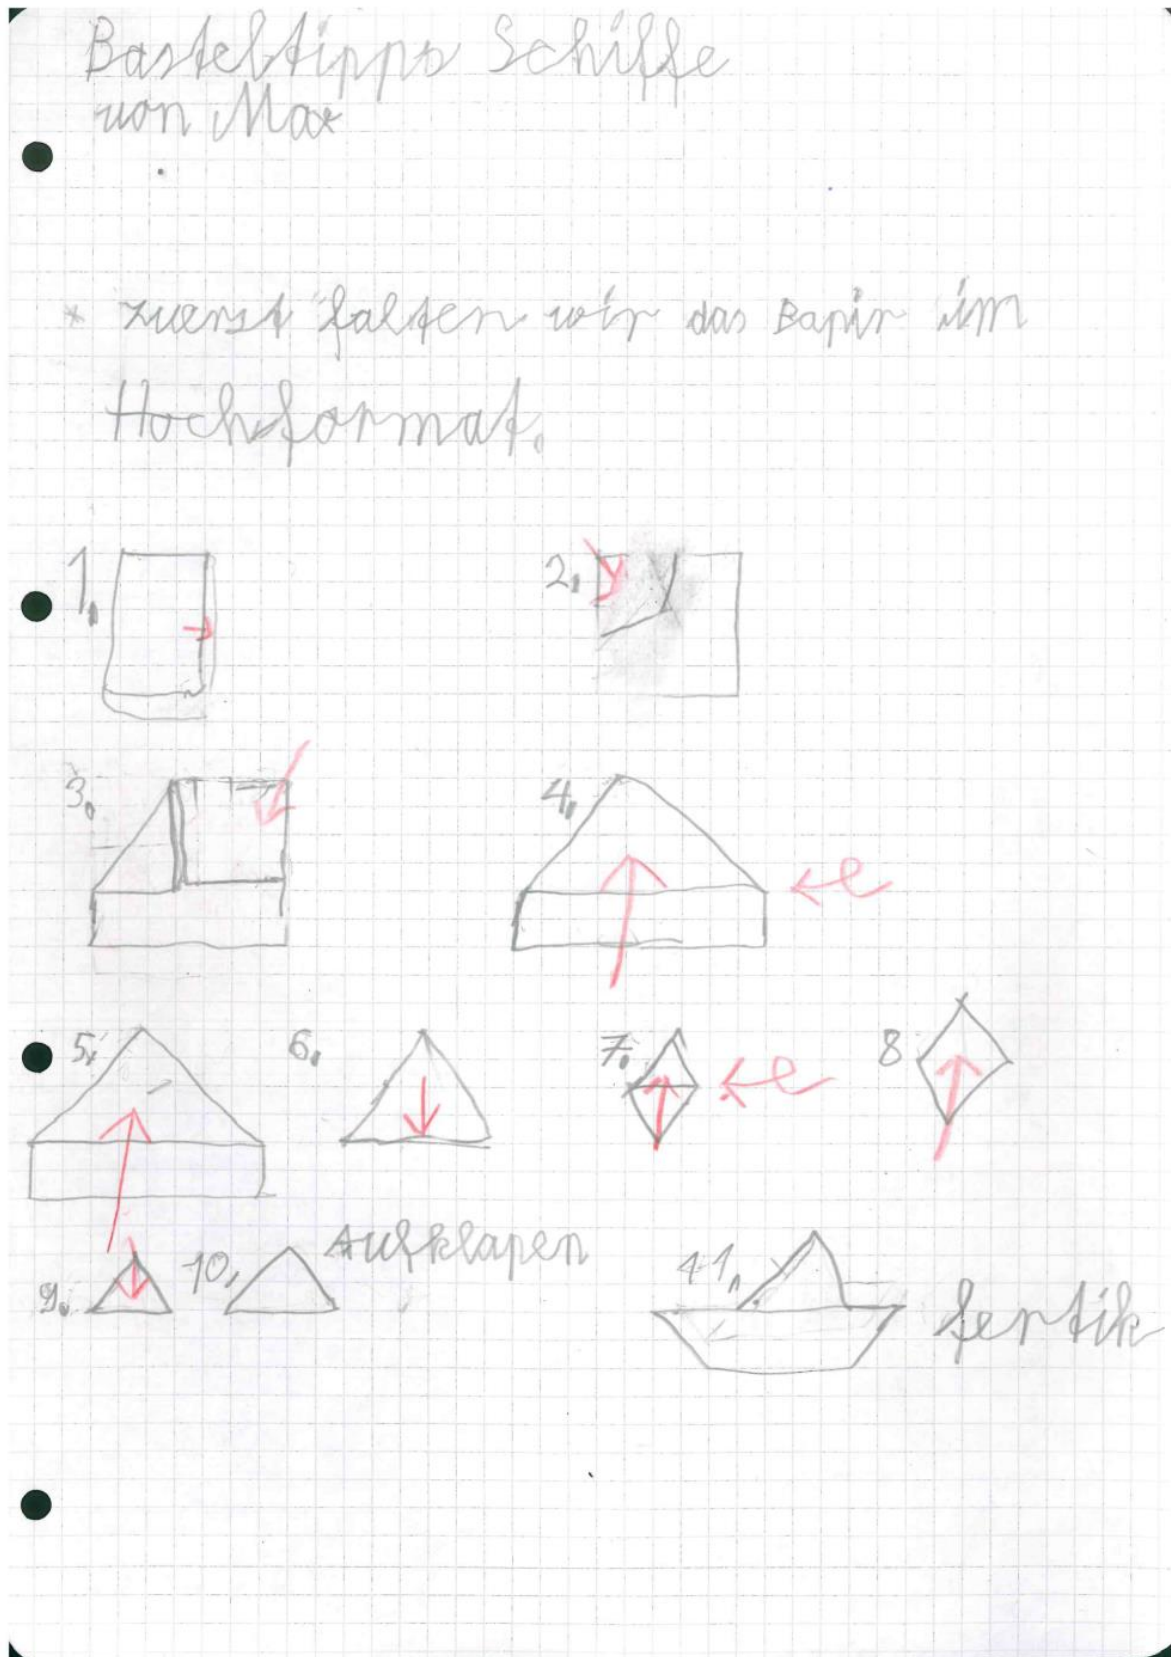 Basteltipps Schiffe
von Max
* zuerst falten wir das Bapir im
Hochformat.
1.
2.
3.
4.
5.
6.
7.
8
9.
10.
Aufklapen
11.
fertik